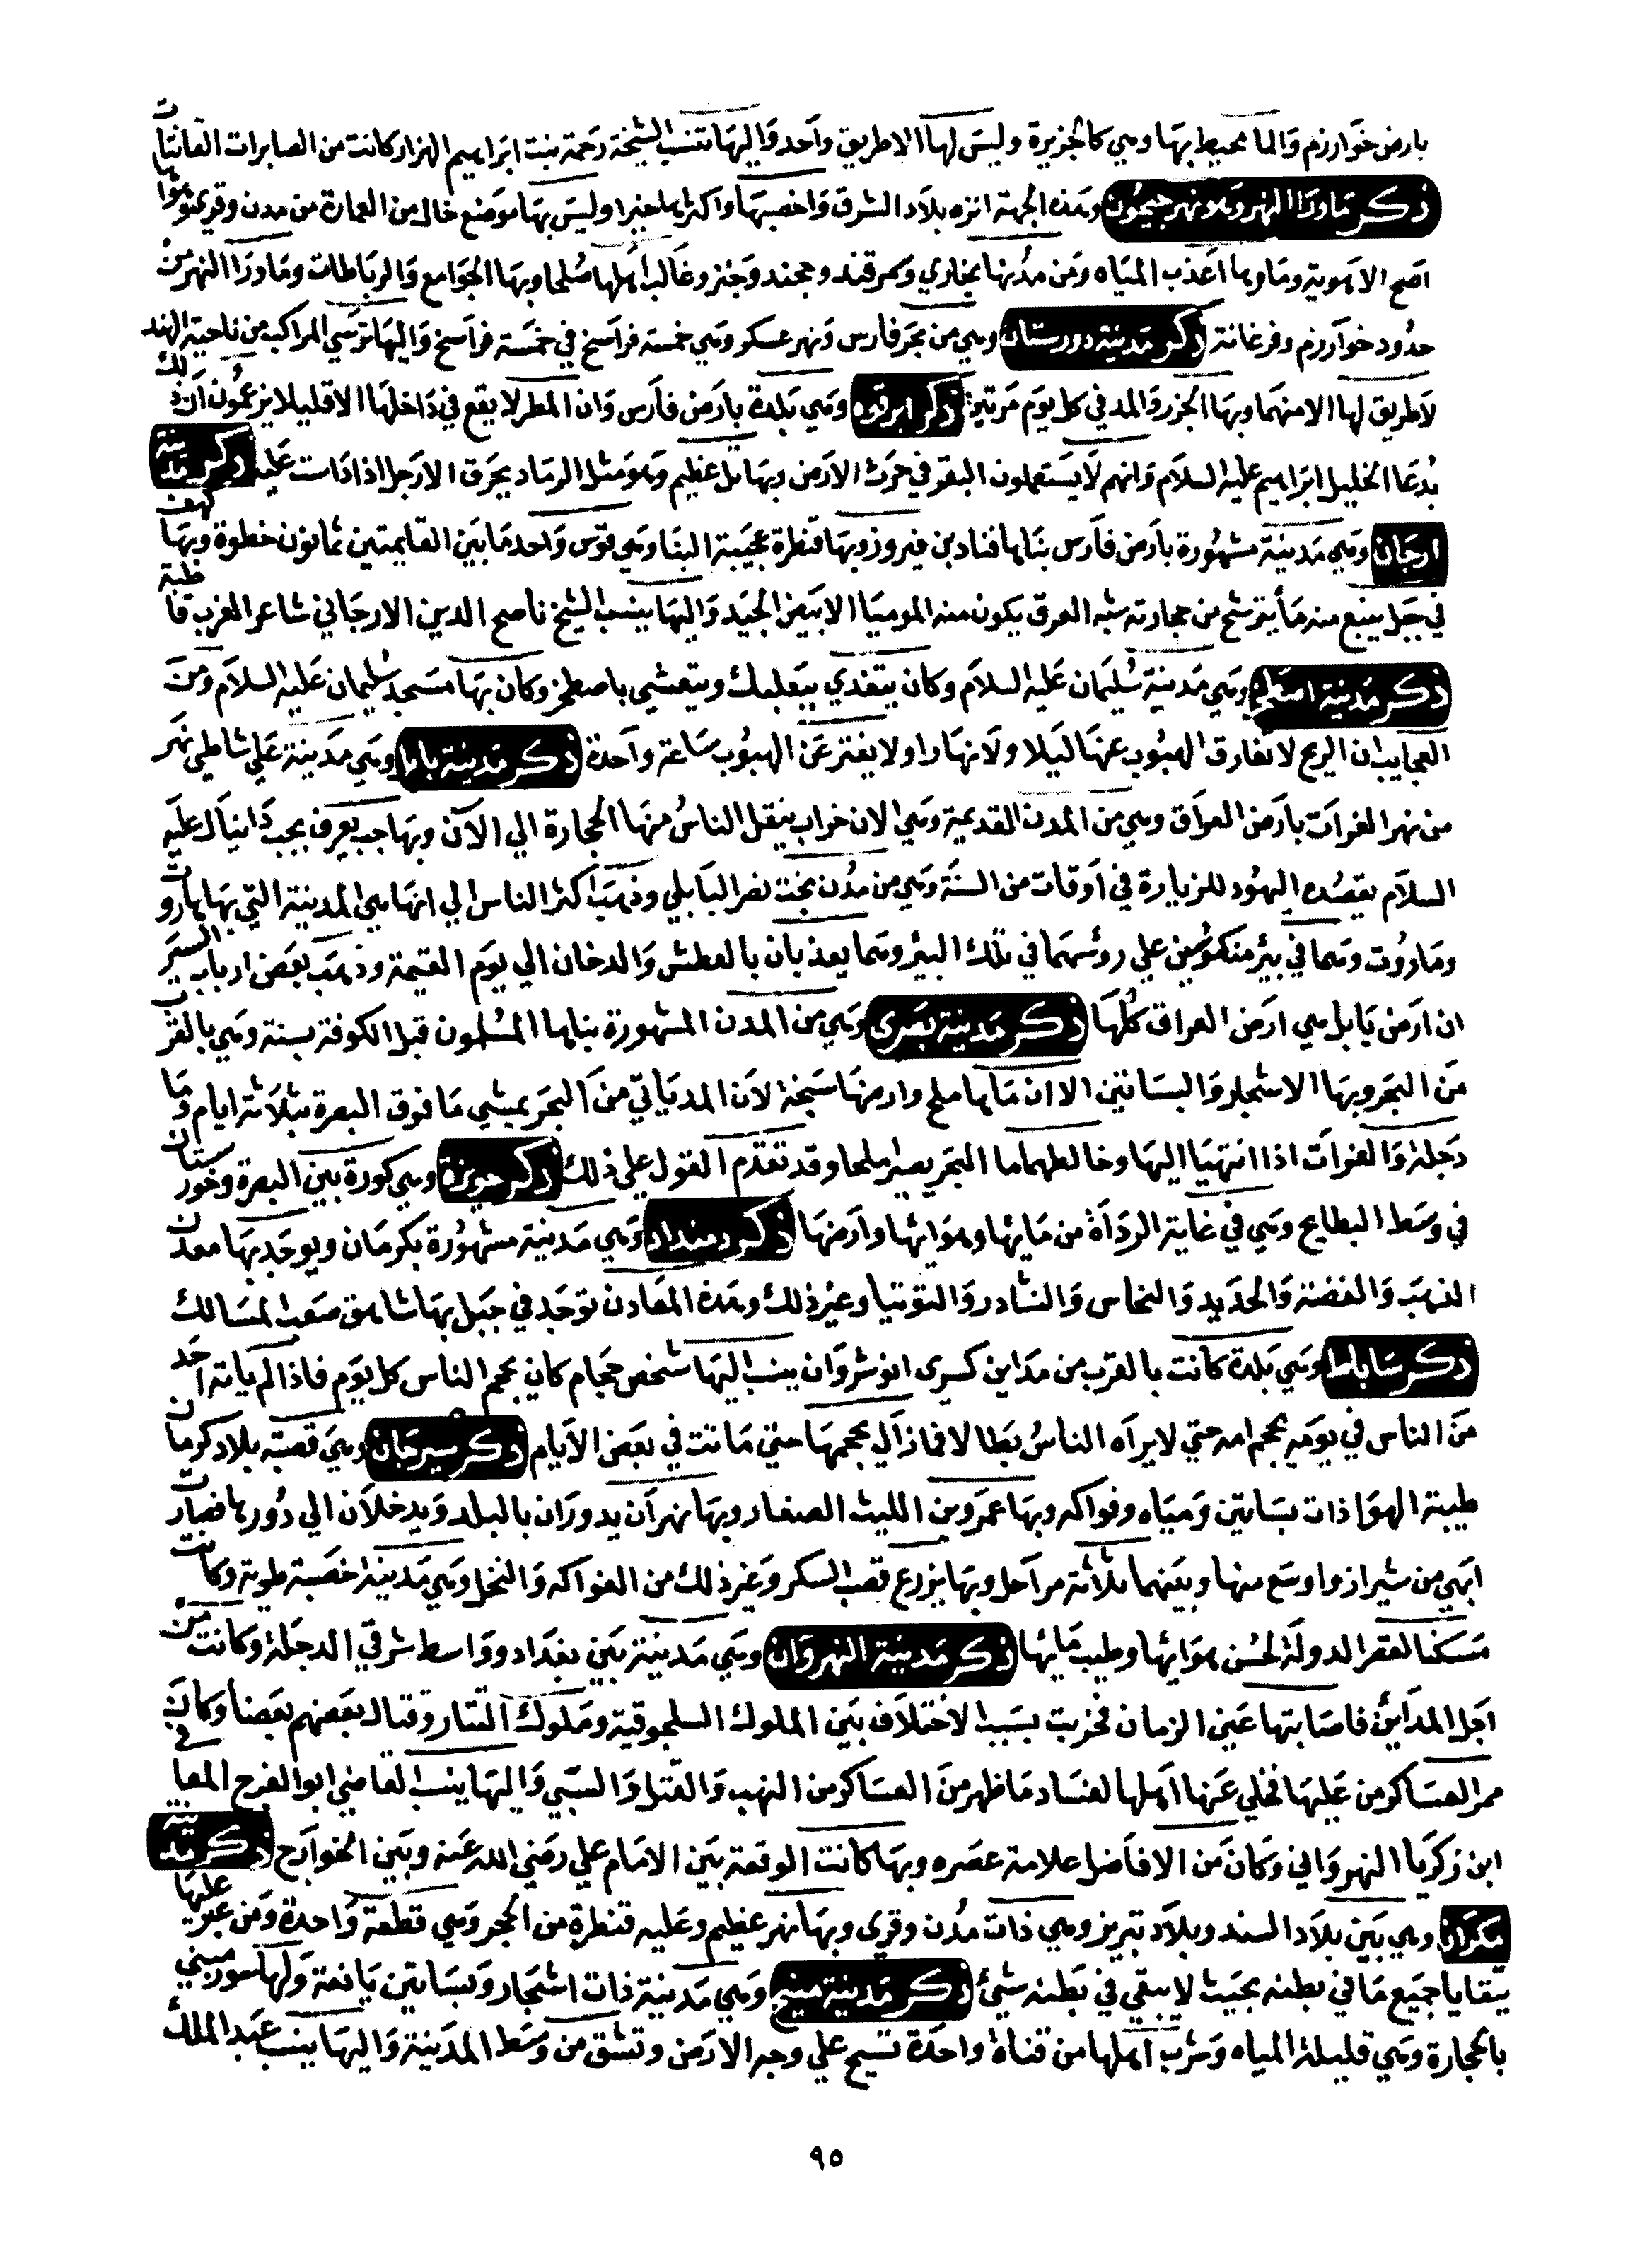 بارض خوارزم والما محيط بها وهي كالجزيرة وليس لها الا طريق واحد واليها تنسب الشيخة رحمة بنت ابراهيم الهزار كانت من الصابرات القانتات
ذكر ماورا النهر وبلاد نهر جيحون وهذه الجهة انزه بلاد الشرق واخصبها واكثرها خيرا وليس بها موضع خال من العمارة من مدن وقري وهواها
اصح الاهوية وماوها اعذب المياه ومن مدنها بخاري وسمرقند وجخند وجنز وغالب اهلها صلحا وبها الجوامع والرباطات وماورا النهر من
حدود خوارزم وفرغانة ذكر مدينة دورستان وهي من بحر فارس ونهر عسكر وهي خمسة فراسخ في خمسة فراسخ واليها ترسي المراكب من ناحية الهند
لا طريق لها الا منهما وبها الجزر والمد في كل يوم مرتين ذكر ابرقوه وهي بلدة بارض فارس وان المطر لا يقع في داخلها الا قليلا يزعمون ان ذلك
بدعا الخليل ابراهيم عليه السلام وانهم لا يستعملون البقر في حرث الارض وبها تل عظيم وهو مثل الرماد يحرق الارجل اذا داست عليه ذكر مدينة
ارجان وهي مدينة مشهورة بارض فارس بناها قناد بن فيروز وبها قنطرة عجيبة البنا وهي قوس واحد ما بين القايمتين ثمانون خطوة وبها كهف
في جبل ينبع منه ما يترشح من حجارته شبه العرق يكون منه الموميا الابيض الجيد واليها ينسب الشيخ ناصح الدين الارجاني شاعر الغرب قاطبة
ذكر مدينة اصطخر وهي مدينة سليمان عليه السلام وكان يتغدي ببعلبك ويتعشي باصطخر وكان بها مسجد سليمان عليه السلام ومن
العجايب ان الريح لا تفارق الهبوب عنها ليلا ولا نهارا ولا يفتر عن الهبوب ساعة واحدة ذكر مدينة بابل وهي مدينة علي شاطي نهر
من نهر الفرات بارض العراق وهي من المدن القديمة وهي الان خراب ينقل الناس منها الحجارة الي الآن وبها جب يعرف بجب دانيال عليه
السلام يقصده اليهود للزيارة في اوقات من السنة وهي من مدن بخت نصر البابلي وذهب اكثر الناس الي انها هي المدينة التي بها هاروت
وماروت وهما في بير منكوسين علي روسهما في تلك البير وهما يعذبان بالعطش والدخان الي يوم القيمة وذهب بعض ارباب السير
ان ارض بابل هي ارض العراق كلها ذكر مدينة بصرى وهي من المدن المشهورة بناها المسلمون قبل الكوفة بسنة وهي بالقرب
من البحر وبها الاشجار والبساتين الا ان ماها ملح وارضها سبخة لان المد ياتي من البحر يمشي ما فوق البصرة بثلاثة ايام وما
دجلة والفرات اذا انتهيا اليها وخالطهما ما البحر يصير ملحا وقد تقدم القول علي ذلك ذكر حويزة وهي كورة بين البصرة وخورستان
في وسط البطايح وهي في غاية الرداة من مايها وهوائها وارضها ذكر دمندان وهي مدينة مشهورة بكرمان ويوجد بها معدن
الذهب والفضة والحديد والنحاس والنشادر والتوتيا وغير ذلك وهذه المعادن توجد في جبل بها شاهق صعب المسالك
ذكر ساباط وهي بلدة كانت بالقرب من مداين كسرى انوشروان ينسب اليها شخص حجام كان يحجم الناس كل يوم فاذا لم ياته احد
من الناس في يومه يحجم امه حتي لا يراه الناس بطالا فما زال يحجمها حتي ماتت في بعض الايام ذكر سيرجان وهي قصبة بلاد كرمان
طيبة الهوا ذات بساتين ومياه وفواكه وبها عمرو بن الليث الصفار وبها نهران يدوران بالبلد ويدخلان الي دورها فصارت
ابهي من شيراز واوسع منها وبينهما ثلاثة مراحل وبها يزرع قصب السكر وغير ذلك من الفواكه والنخل وهي مدينة خصبة طوبة وكانت
مسكنا لعقر الدولة لحسن هوائها وطيب مايها ذكر مدينة النهروان وهي مدينة بين بغداد وواسط شرقي الدجلة وكانت من
اجل المداين فاصابتها عين الزمان فخربت بسبب الاختلاف بين الملوك السلجوقية وملوك التتار وقتال بعضهم بعضا وكان في
ممر العساكر من عليها فخلي عنها اهلها لفساد ما ظهر من العساكر من النهب والقتل والسبي واليها ينسب القاضي ابو الفرج المعا
ابن زكريا النهرواني وكان من الافاضل علامة عصره وبها كانت الوقعة بين الامام علي رضي الله عنه وبين الخوارج ذكر مدينة
مكران وهي بين بلاد السند وبلاد تبريز وهي ذات مدن وقري وبها نهر عظيم وعليه قنطرة من الحجر وهي قطعة واحدة ومن عبر عليها
يتقايا جميع ما في بطنه بحيث لا يبقي في بطنه شيئ ذكر مدينة منبج وهي مدينة ذات اشجار وبساتين يانعة ولها سور مبني
بالحجارة وهي قليلة المياه وشرب اهلها من قناة واحدة تسيح علي وجه الارض وتشق من وسط المدينة واليها ينسب عبد الملك
٩٥